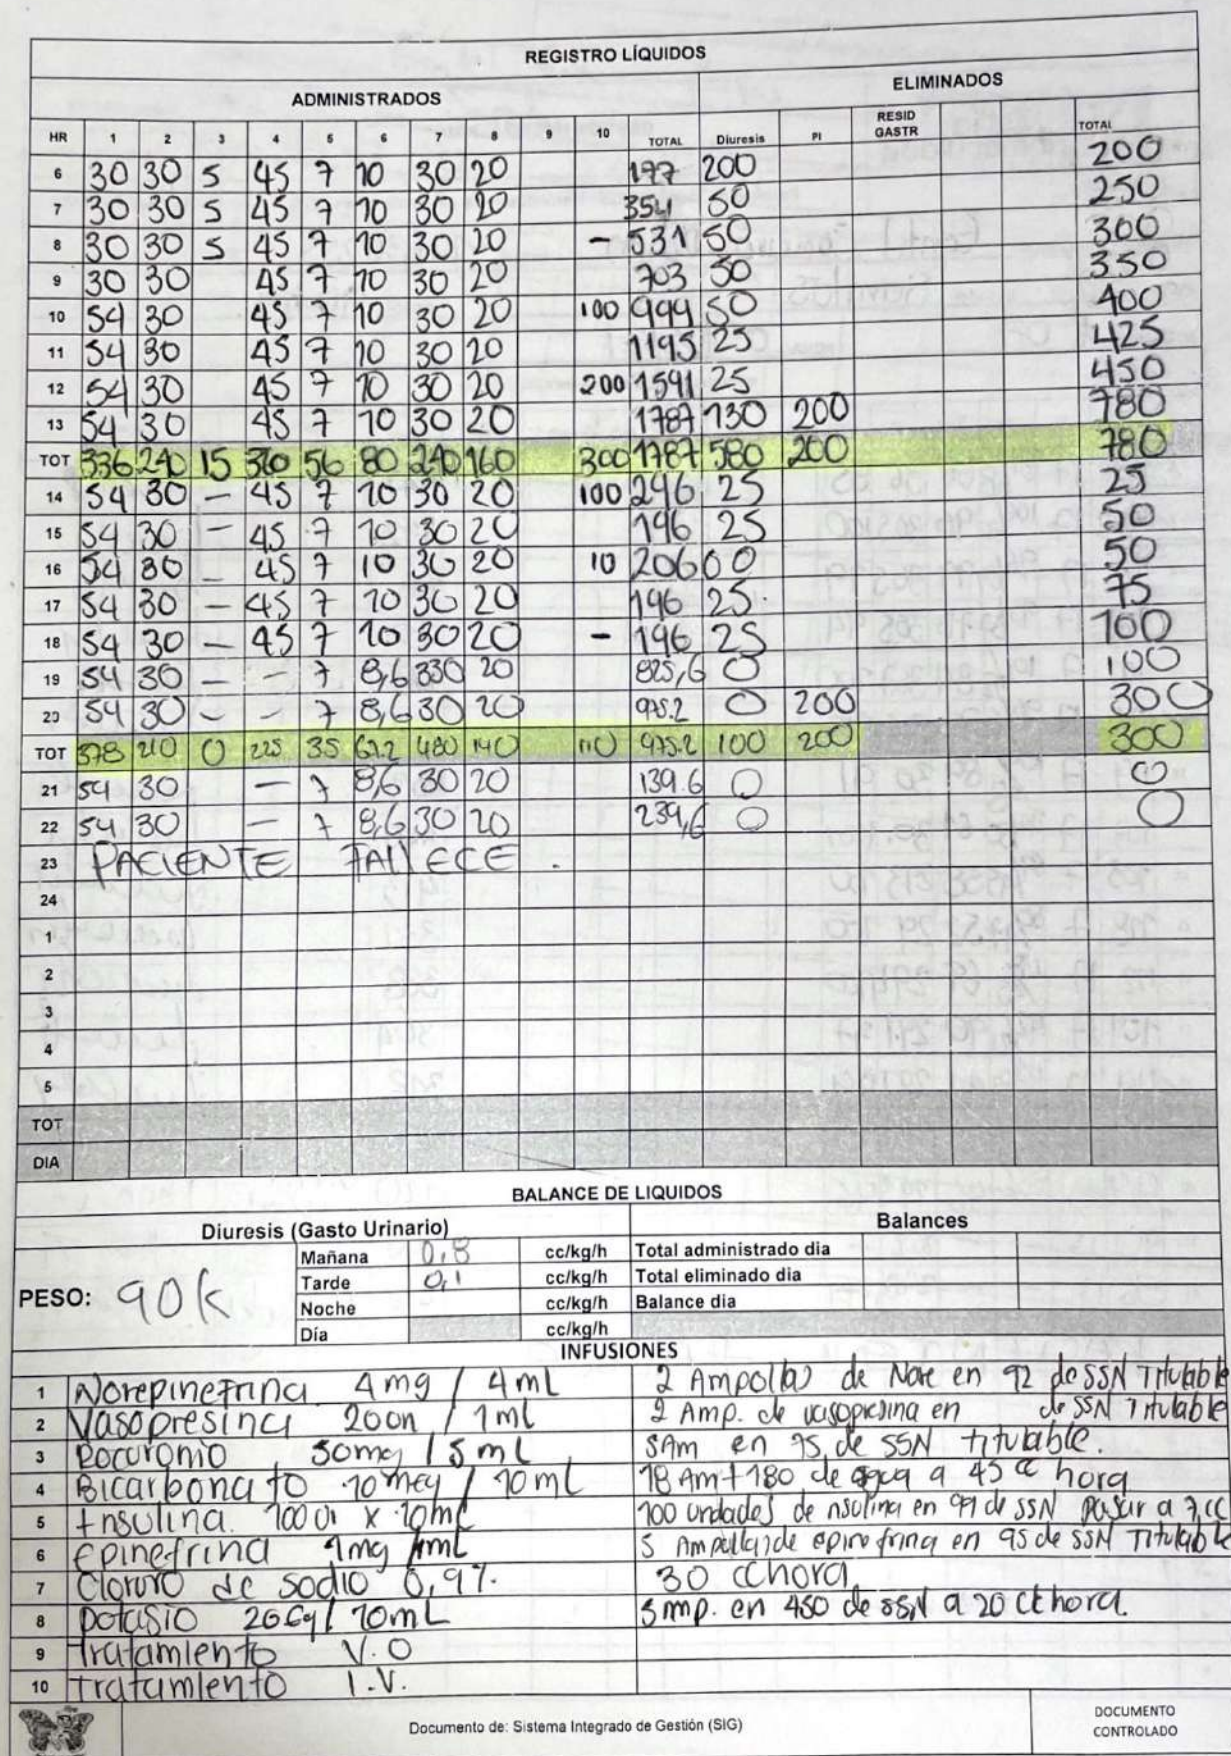 REGISTRO LÍQUIDOS
ADMINISTRADOS ELIMINADOS
HR 1 2 3 4 5 6 7 8 9 10 TOTAL Diuresis PI RESID GASTR TOTAL
6 30 30 5 45 7 10 30 20 177 200 200
7 30 30 5 45 7 10 30 20 354 50 250
8 30 30 5 45 7 10 30 20 - 531 50 300
9 30 30 45 7 10 30 20 703 50 350
10 54 30 45 7 10 30 20 100 999 50 400
11 54 30 45 7 10 30 20 1195 25 425
12 54 30 45 7 10 30 20 200 1591 25 450
13 54 30 45 7 10 30 20 1787 130 200 780
TOT 336 240 15 360 56 80 240 160 300 1787 580 200 780
14 54 30 - 45 7 10 30 20 100 296 25 25
15 54 30 - 45 7 10 30 20 196 25 50
16 54 30 - 45 7 10 30 20 10 206 00 50
17 54 30 - 45 7 10 30 20 196 25 75
18 54 30 - 45 7 10 30 20 - 196 25 100
19 54 30 - - 7 8,6 330 20 825,6 0 100
20 54 30 - - 7 8,6 30 20 975.2 0 200 300
TOT 378 210 0 225 35 67.2 480 140 110 975.2 100 200 300
21 54 30 - 7 8,6 30 20 139.6 0 0
22 54 30 - 7 8,6 30 20 239,6 0 0
23 PACIENTE FALLECE.
24
1
2
3
4
5
TOT
DIA
BALANCE DE LIQUIDOS
Diuresis (Gasto Urinario) Balances
PESO: 90K
Mañana 0,8 cc/kg/h Total administrado dia
Tarde 0,1 cc/kg/h Total eliminado dia
Noche cc/kg/h Balance dia
Día cc/kg/h
INFUSIONES
1 Norepinefrina 4mg / 4mL 2 Ampollas de Nore en 92 de SSN Titulable
2 Vasopresina 20un / 1ml 2 Amp. de vasopresina en de SSN Titulable
3 Rocuronio 50mg / 5mL 5Am en 75 de SSN titulable.
4 Bicarbonato 10meq / 10ml 18 Am + 180 de agua a 45 cc hora
5 Insulina 100 UI x 10ml 100 unidades de nsulina en 99 de SSN pasar a 7 cc
6 Epinefrina 1mg /1ml 5 Ampollas de epinefrina en 95 de SSN Titulable
7 Cloruro de sodio 0,9%. 30 cc hora
8 potasio 20Eq / 10mL 5 mp. en 450 de ssN a 20 cc hora.
9 Tratamiento V.O
10 Tratamiento I.V.
Documento de: Sistema Integrado de Gestión (SIG)
DOCUMENTO
CONTROLADO